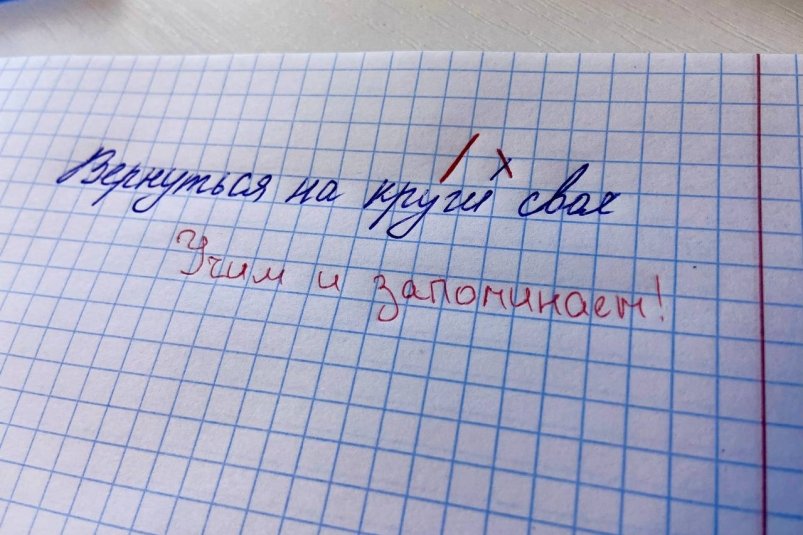 Вернуться на круги своя
Учим и запоминаем!